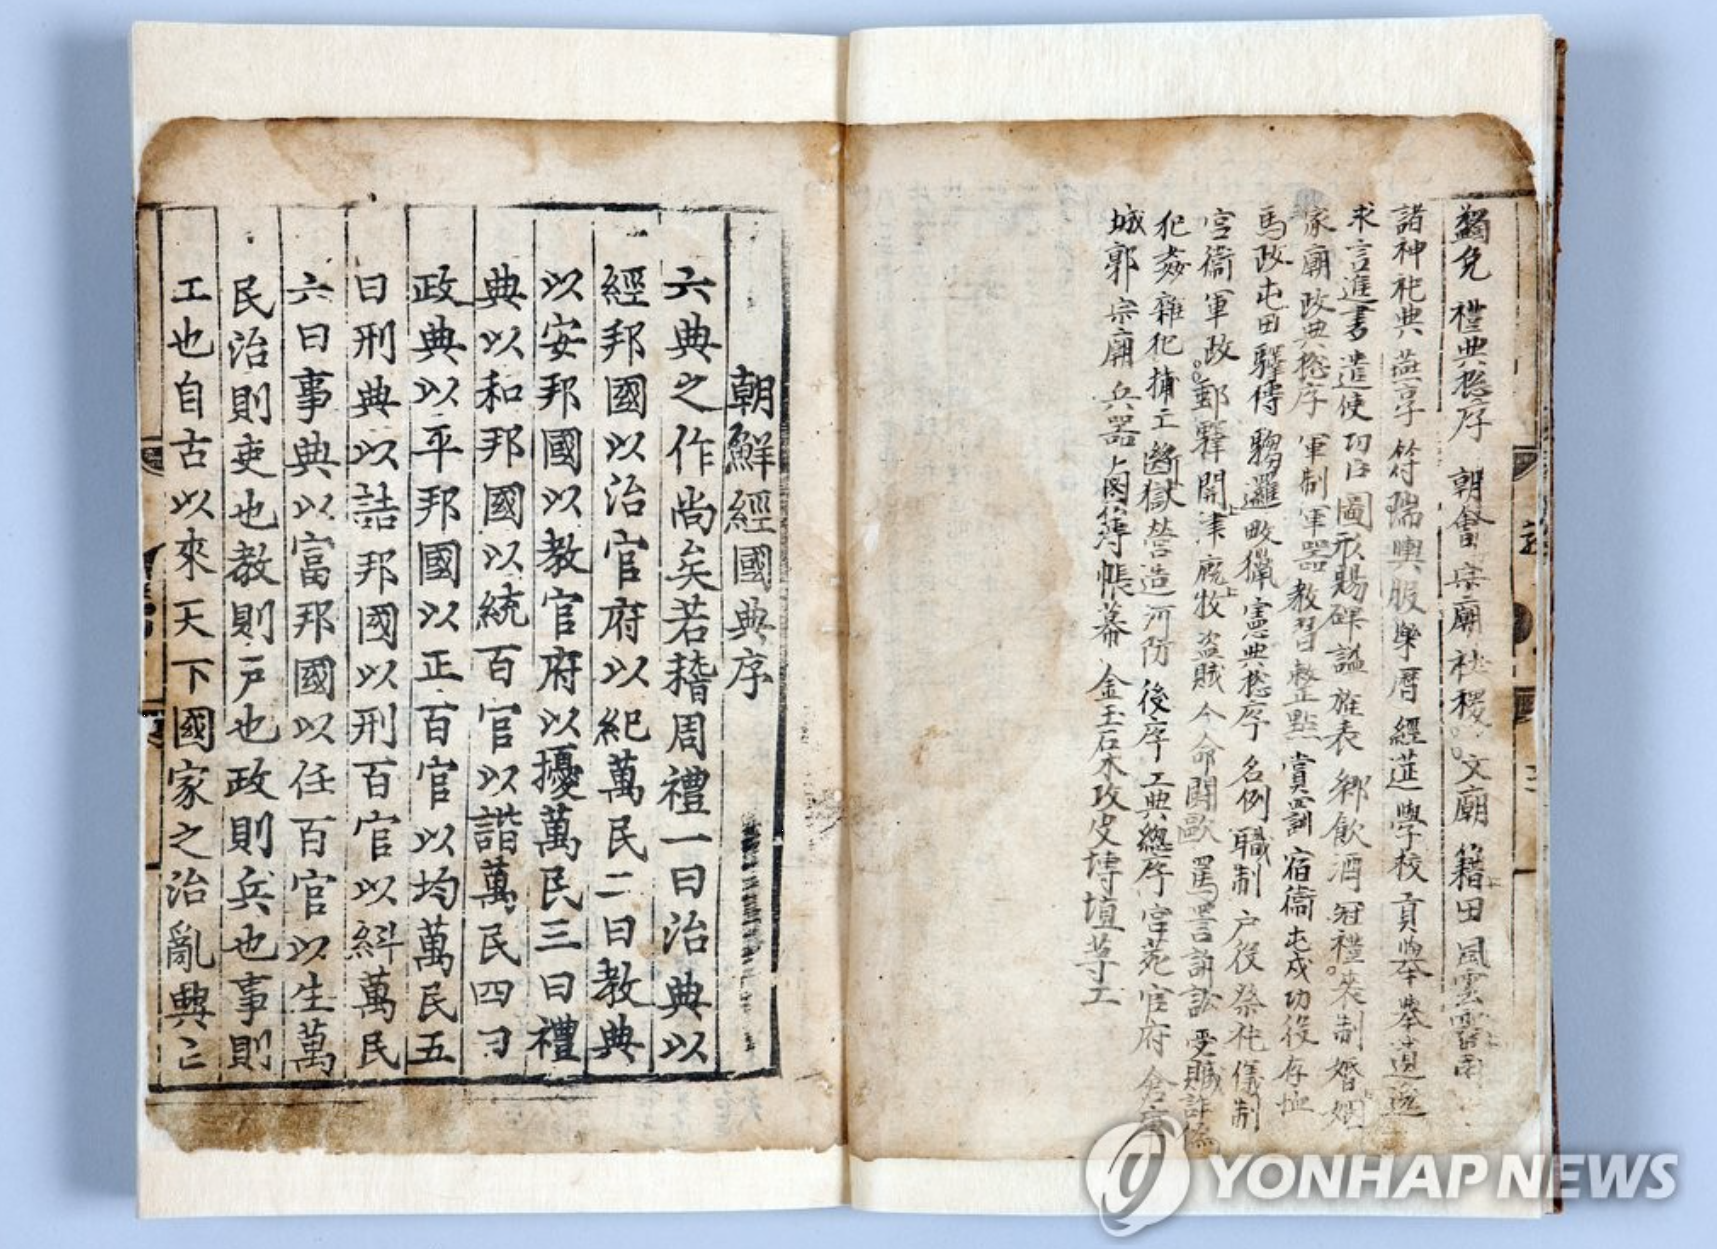 蠲免 禮典摠序 朝會 宗廟 社稷 文廟 籍田 風雲雷雨
諸神祀典 燕享 符瑞 輿服 樂 曆 經筵 學校 貢擧 擧遺逸
求言進書 遣使 功臣圖形賜碑 謚 旌表 鄕飮酒 冠禮 喪制 婚姻
家廟 政典摠序 軍制 軍器 教習 整點 賞罰 宿衛 屯戍 功役 存恤
馬政 屯田 驛傳 騶邏 畋獵 憲典摠序 名例 職制 户役 祭祀 儀制
宮衛 軍政 郵驛 關津 廐牧 盜賊 命 鬪歐 罵詈 訴訟 受贓 詐僞
犯姦 雜犯 捕亡 斷獄 營造 河防 後序 工典總序 宮苑 官府 倉庫
城郭 宗廟 兵器 鹵簿 帳幕 金玉石木攻皮塼埴等工
朝鮮經國典序
六典之作尚矣若稽周禮一曰治典以
經邦國以治官府以紀萬民二曰教典
以安邦國以教官府以擾萬民三曰禮
典以和邦國以統百官以諧萬民四曰
政典以平邦國以正百官以均萬民五
曰刑典以詰邦國以刑百官以糾萬民
六曰事典以富邦國以任百官以生萬
民治則吏也教則戸也政則兵也事則
工也自古以來天下國家之治亂興亡
YONHAP NEWS